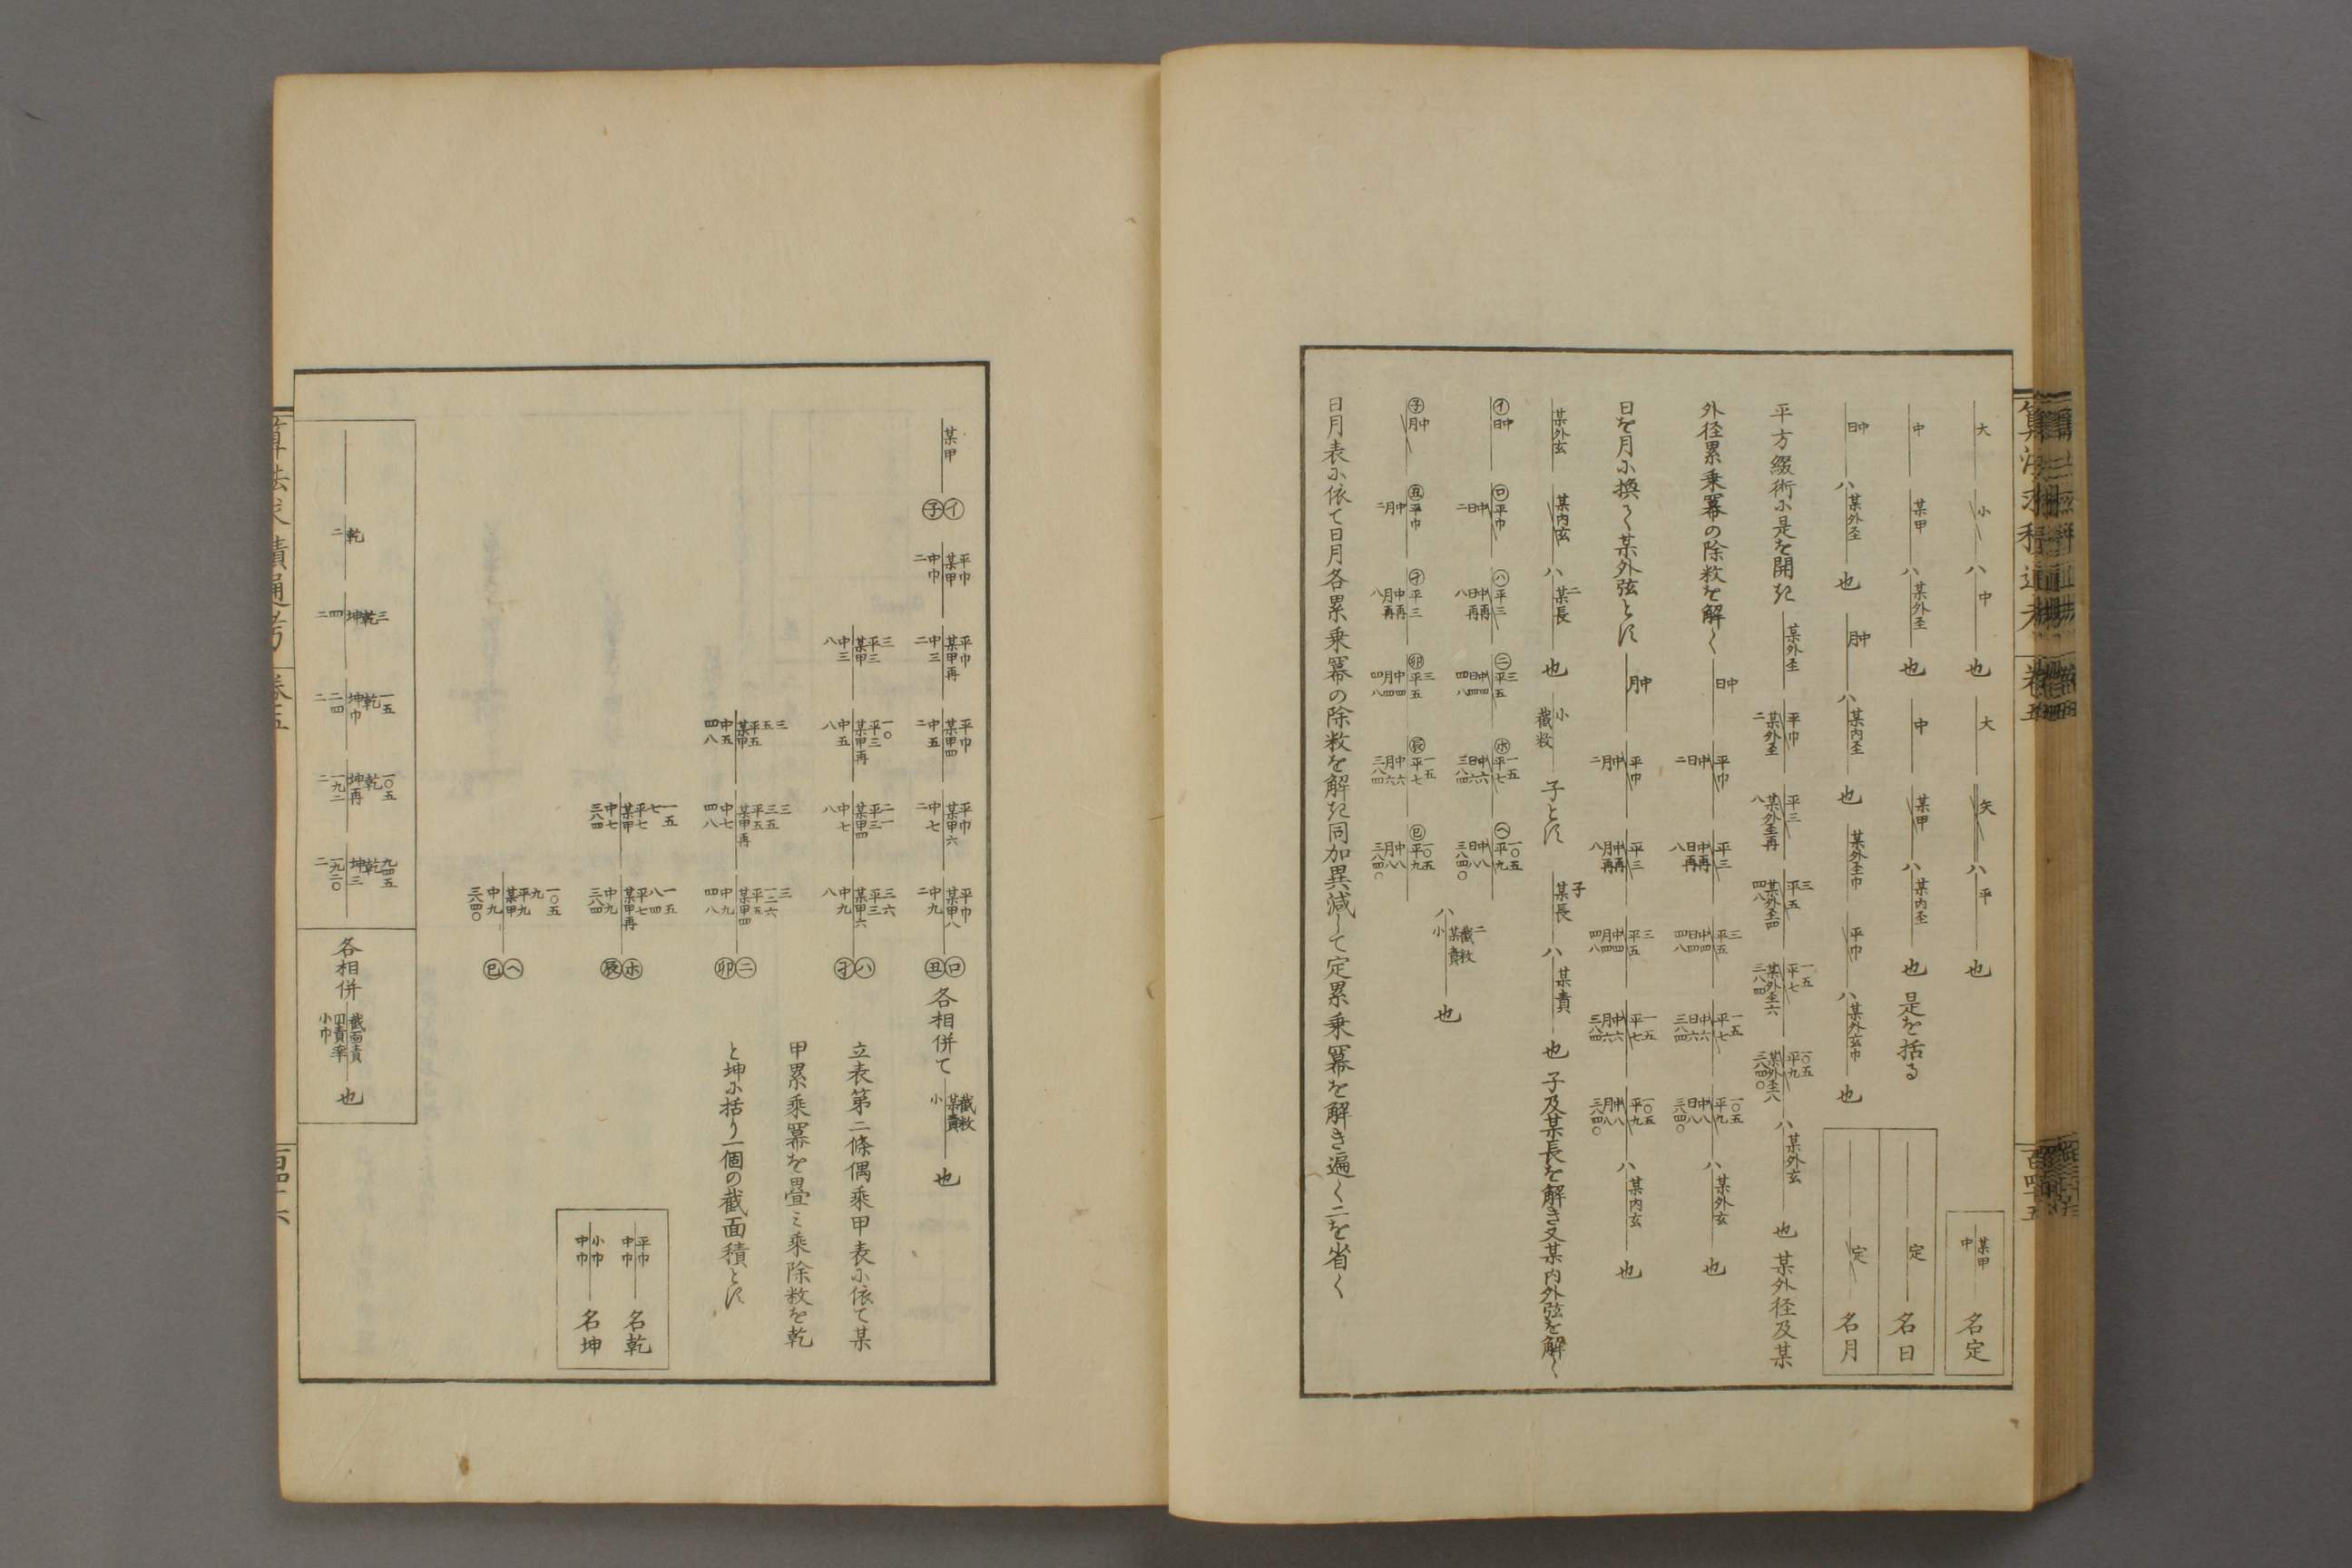 大 小 ハ 中 也 大 矢 ハ 平 也
某甲 中 名定
中 某甲 ハ 某外圣 也 中 某甲 ハ 某内圣 也 是を括る
定 名日
日中 ハ 某外圣 也 月中 ハ 某内圣 也 某外圣巾 平巾 ハ 某外玄巾 也
定 名月
平方綴術ニ是を開き 某外圣 平巾 某外圣 二 平三 某外圣再 八 三 平五 某外圣四 四八 一五 平七 某外圣六 三八四 一〇五 平九 某外圣八 三八四〇 ハ 某外玄 也 某外径及某
外径累乗冪の除数を解く 日中 平巾 日中 二 平三 日再 中再 八 三 平五 日四 中四 四八 一五 平七 日六 中六 三八四 一〇五 平九 日八 中八 三八四〇 ハ 某外玄 也
日を月ニ換て某外弦とす 月中 平巾 月中 二 平三 月再 中再 八 三 平五 月四 中四 四八 一五 平七 月六 中六 三八四 一〇五 平九 月八 中八 三八四〇 ハ 某内玄 也
某外玄 某内玄 ハ 二 某長 也 小 截数 子とす 子 某長 ハ 某責 也 子及某長を解き又某内外弦を解く
イ 日中 ロ 平巾 日中 二 ハ 平三 日再 中再 八 ニ 三 平五 日四 中四 四八 ホ 一五 平七 日六 中六 三八四 ヘ 一〇五 平九 日八 中八 三八四〇
ハ 二 截数 某責 小 也
子 月中 丑 平巾 月中 二 寅 平三 月再 中再 八 卯 三 平五 月四 中四 四八 辰 一五 平七 月六 中六 三八四 巳 一〇五 平九 月八 中八 三八四〇
日月表ニ依て日月各累乗冪の除数を解き同加異減して定累乗冪を解き遍く二を省く
算法求積通考 巻五 百四十五
某甲 イ 子
平巾 某甲 中巾 二 平巾 某甲再 中三 二 平巾 某甲四 中五 二 平巾 某甲六 中七 二 平巾 某甲八 中九 二 ロ 丑 各相併て 截数 某責 小 也
三 平三 某甲 中三 八 一〇 平三 某甲再 中五 八 二一 平三 某甲四 中七 八 三六 平三 某甲六 中九 八 ハ 寅
三 五 平五 某甲 中五 四八 三 三五 平五 某甲再 中七 四八 三 一二六 平五 某甲四 中九 四八 ニ 卯
一五 七 平七 某甲 中七 三八四 一五 八四 平七 某甲再 中九 三八四 ホ 辰
一〇五 九 平九 某甲 中九 三八四〇 ヘ 巳
立表第二條偶乗甲表ニ依て某
甲累乗冪を畳ミ乗除数を乾
と坤ニ括り一個の截面積とす
平巾 中巾 名乾
小巾 中巾 名坤
乾 二 三 乾 坤 四 二 一五 乾 坤巾 二四 二 一〇五 乾 坤再 一九二 二 九四五 乾 坤三 一九二〇 二 各相併 截面責 四責率 小巾 也
算法求積通考 巻五 百四十六